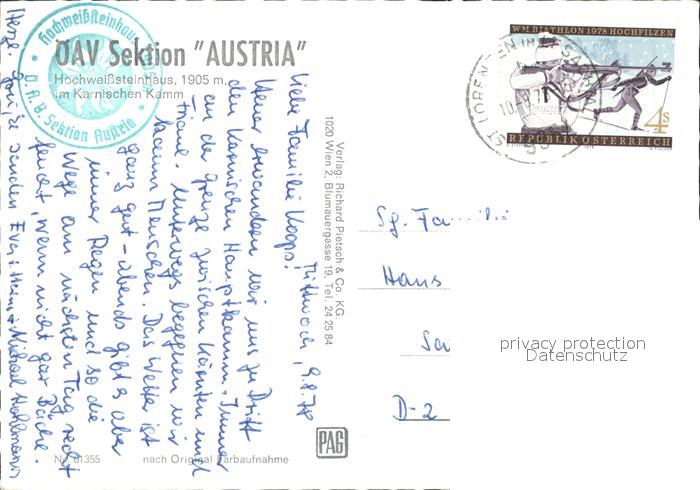 ÖAV Sektion "AUSTRIA"
Hochweißsteinhaus, 1905 m,
im Karnischen Kamm
Hochweißsteinhaus
Ö.A.V. Sektion Austria
Mittwoch, 9.8.78
Liebe Familie Koops!
Heuer erwandern wir uns zu Dritt
den Karnischen Hauptkamm. Immer
an der Grenze zwischen Kärnten und
Unterwegs begegnen wir
kaum Menschen. Das Wetter ist
ganz gut - abends gibt's aber
immer Regen und so die
Wege am nächsten Tag recht
feucht, wenn nicht gar Bäche.
Herzl. Grüße senden Michael
Verlag: Richard Pietsch & Co. KG.
1020 Wien 2, Blumauergasse 19, Tel. 24 25 84
PAG
Nr. 61355
nach Original Farbaufnahme
WM BIATHLON 1978 HOCHFILZEN
4S
REPUBLIK ÖSTERREICH
ST LORENZEN IM
Sg. Familie
Hans
D-2
privacy protection
Datenschutz